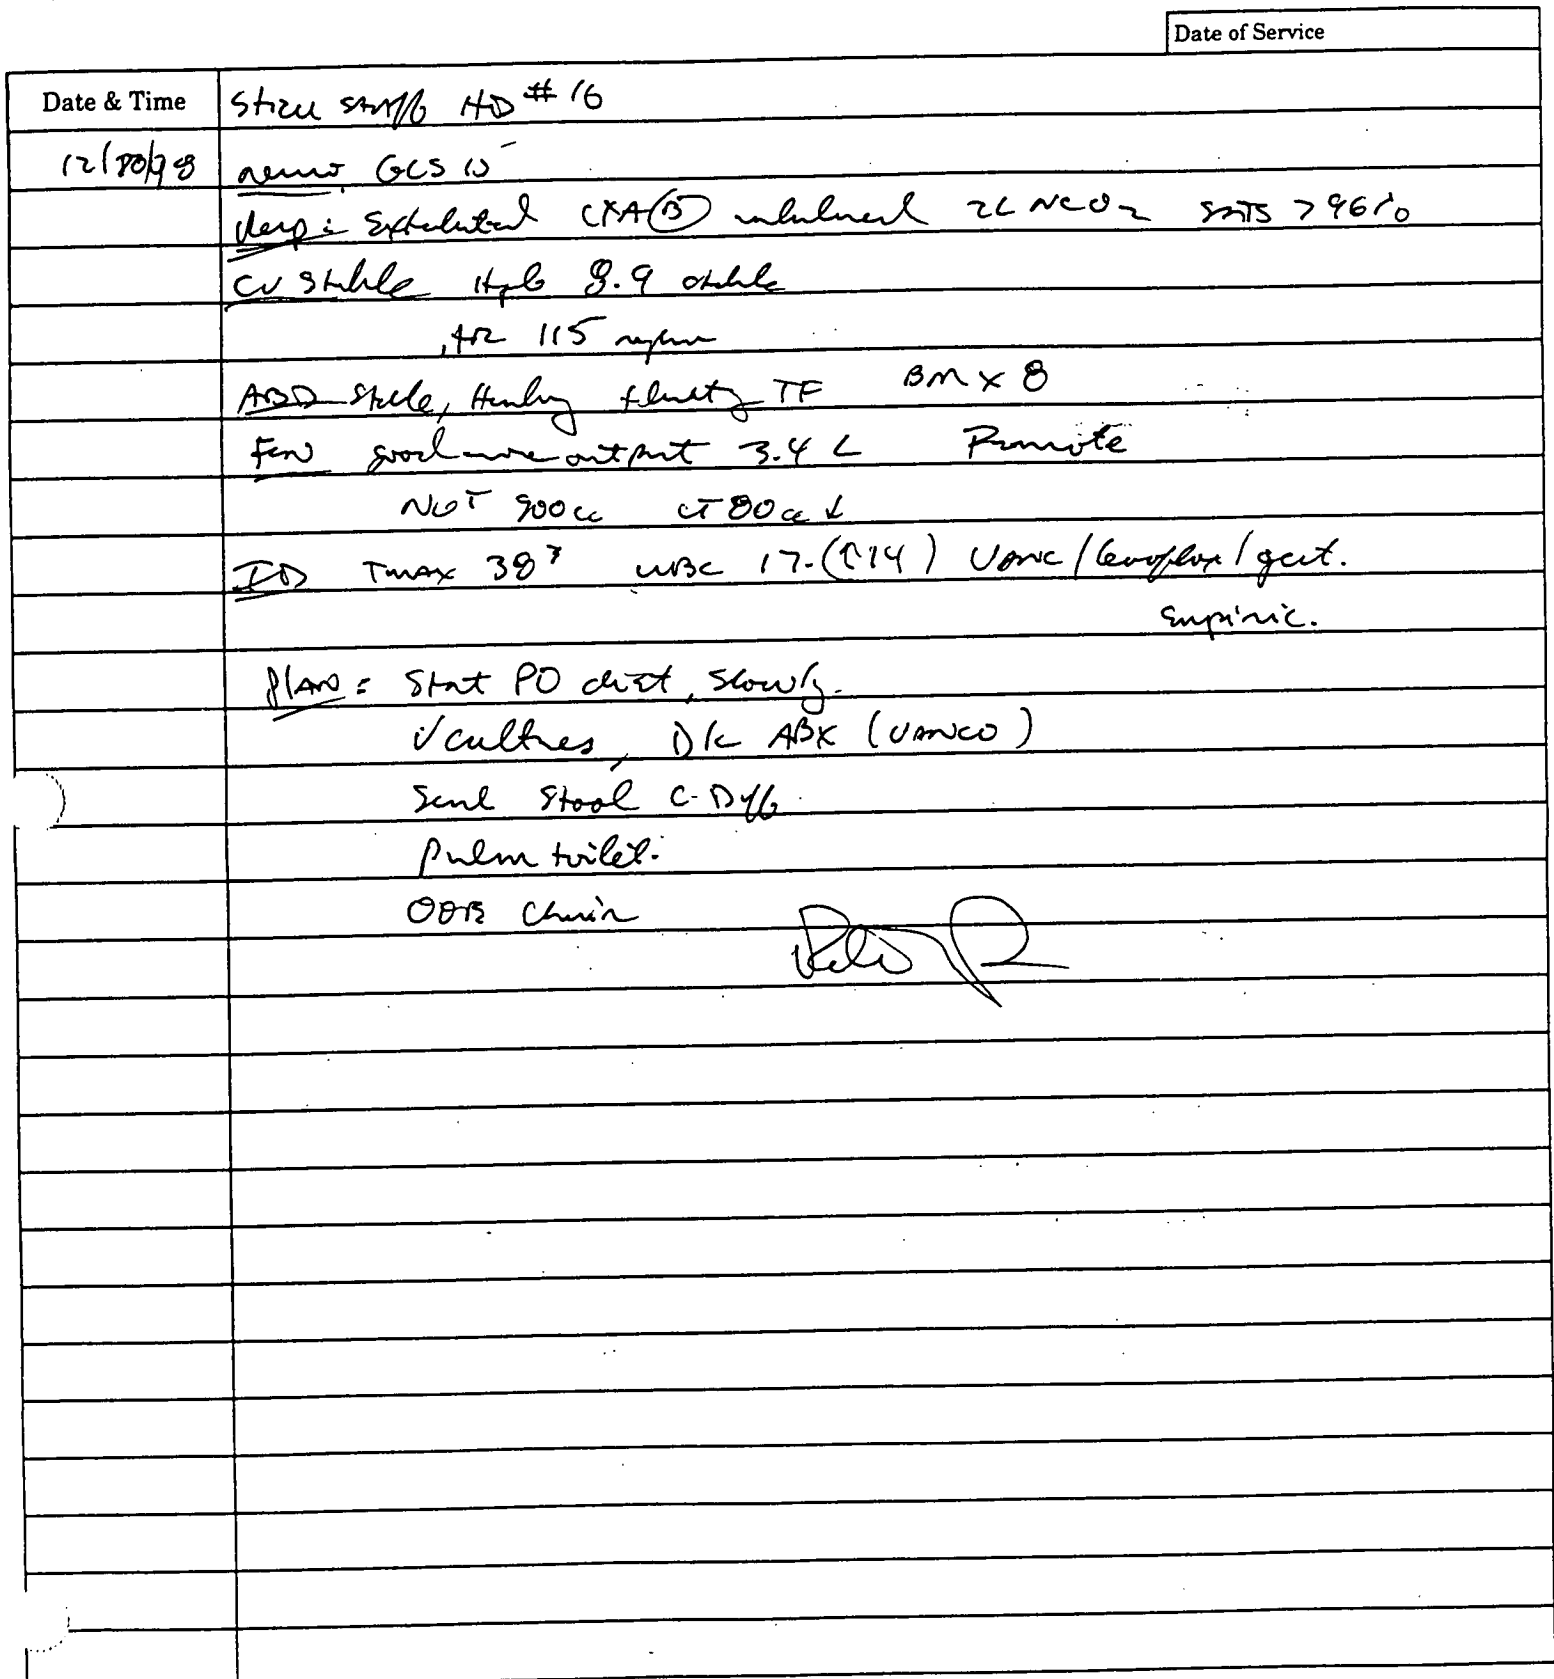 Date of Service
Date & Time STICU Staff HD # 16
12/30/98 neuro GCS 15
Resp: Extubated CTA (B) 2L NCO2 SATS > 96%
CV Stable Hgb 8.9 stable
HR 115
ABD Stable, TF BM x 8
FEN good urine output 3.4 L Promote
NGT 900cc CT 80cc ↓
ID Tmax 38³ WBC 17. (↑14) VANC/levoflox/gent.
Empiric.
Plan: Start PO diet, slowly.
√ cultures, D/C ABX (VANCO)
Send Stool C-Diff
Pulm toilet.
OOB Chair